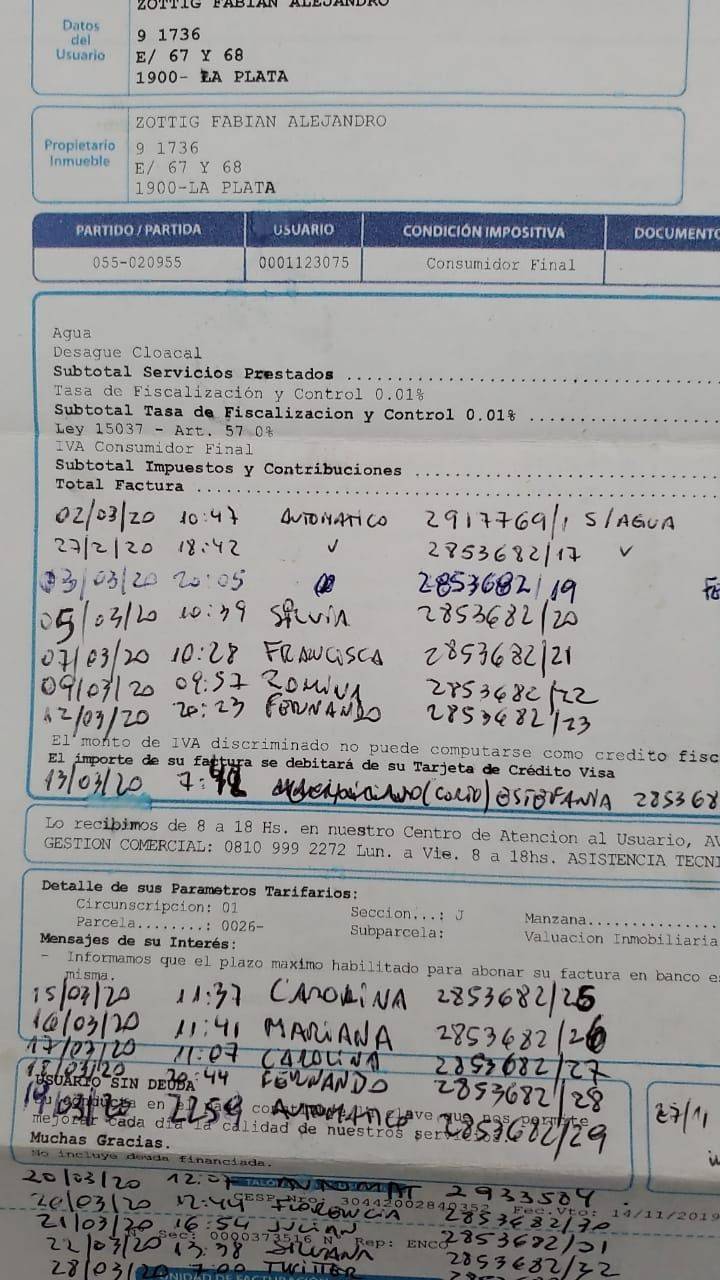 ZOTTIG FABIAN ALEJANDRO
Datos del Usuario
9 1736
E/ 67 Y 68
1900- LA PLATA
Propietario Inmueble
ZOTTIG FABIAN ALEJANDRO
9 1736
E/ 67 Y 68
1900-LA PLATA
PARTIDO / PARTIDA USUARIO CONDICIÓN IMPOSITIVA DOCUMENTO
055-020955 0001123075 Consumidor Final
Agua
Desague Cloacal
Subtotal Servicios Prestados
Tasa de Fiscalización y Control 0.01%
Subtotal Tasa de Fiscalizacion y Control 0.01%
Ley 15037 - Art. 57 0%
IVA Consumidor Final
Subtotal Impuestos y Contribuciones
Total Factura
02/03/20 10:47 AUTOMATICO 2917769/1 S/AGUA
27/2/20 18:42 ✓ 2853682/17 ✓
03/03/20 20:05 2853682/19
05/03/20 10:39 SILVIA 2853682/20
07/03/20 10:28 FRANCISCA 2853682/21
09/03/20 09:57 ROMINA 2853682/22
12/03/20 20:23 FERNANDO 2853682/23
El monto de IVA discriminado no puede computarse como credito fisc
El importe de su factura se debitará de su Tarjeta de Crédito Visa
13/03/20 (CORTO) ESTEFANIA 285368
Lo recibimos de 8 a 18 Hs. en nuestro Centro de Atencion al Usuario, AV
GESTION COMERCIAL: 0810 999 2272 Lun. a Vie. 8 a 18hs. ASISTENCIA TECNI
Detalle de sus Parametros Tarifarios:
Circunscripcion: 01 Seccion...: J Manzana
Parcela........: 0026- Subparcela: Valuacion Inmobiliaria
Mensajes de su Interés:
- Informamos que el plazo maximo habilitado para abonar su factura en banco es
misma.
15/03/20 11:37 CAROLINA 2853682/25
16/03/20 11:41 MARIANA 2853682/26
17/03/20 11:07 CAROLINA 2853682/27
18/03/20 20:44 FERNANDO 2853682/28
USUARIO SIN DEUDA
19/03/20 22:59 AUTOMATICO 2853682/29
mejorar cada dia la calidad de nuestros
Muchas Gracias.
No incluye deuda financiada.
27/1
20/03/20 2933504
20/03/20 12:44 FLORENCIA 2853682/30
GESP Nro: 30442002840352 Fec.Vto: 14/11/2019
21/03/20 16:54 JULIAN 2853682/31
Sec: 0000373516 N Rep: ENCO
22/03/20 13:38 SILVANA 2853682/32
28/03/20 7:00 TWITTER